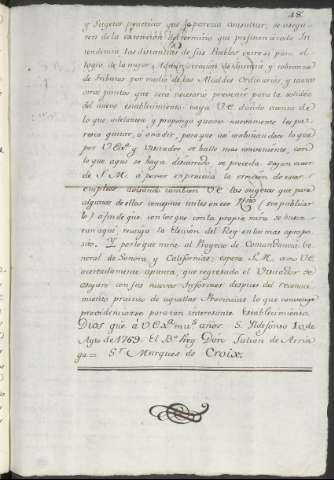 18.
y Sugetos practicos que le parezca consultar, se asegu-
ren de la extencion del termino que prefinan á cada In-
tendencia las distancias de sus Pueblos extremos para el
logro de la mejor Administracion de Justicia y cobranza
de tributos por medio de los Alcaldes Ordinarios, y tanto
otros puntos que sera necesario prevenir para la solidez
del nuevo establecimiento vaya V.E. dando cuenta de
lo que adelantare y proponga quanto nuevamente les pa-
resca quitar, ó anadir, para que en combinandose lo que
por V. Exa. y Visitador se halle mas combeniente, con
lo que aqui se haya discurrido se proceda segun agra-
de S. M. á poner en practica la ereccion de estos
empleos avisando tambien V.E. los sugetos que para
algunos de ellos conceptue utiles en ese Rno. (sin publicar
lo) a fin de que con los que con la propia mira se busca-
ran aqui, recayga la Eleccion del Rey en los mas aproposito
sito. Y por lo que mira al Proyecto de Comandancia Ge-
neral de Sonora y Californias, espera S.M. como V.E.
acertadamente apunta, que regresado el Visitador se
asegure con sus nuevos Informes despues del recono-
cimiento practico de aquellas Provincias lo que convenga
providenciarse para tan interesante Establecimiento
Dios gue. á V. Exa. ms. años. S. Ildefonso 10 de
Agto. de 1769. El Bo. Frey Don Julian de Arria
ga = Sr. Marques de Croix.